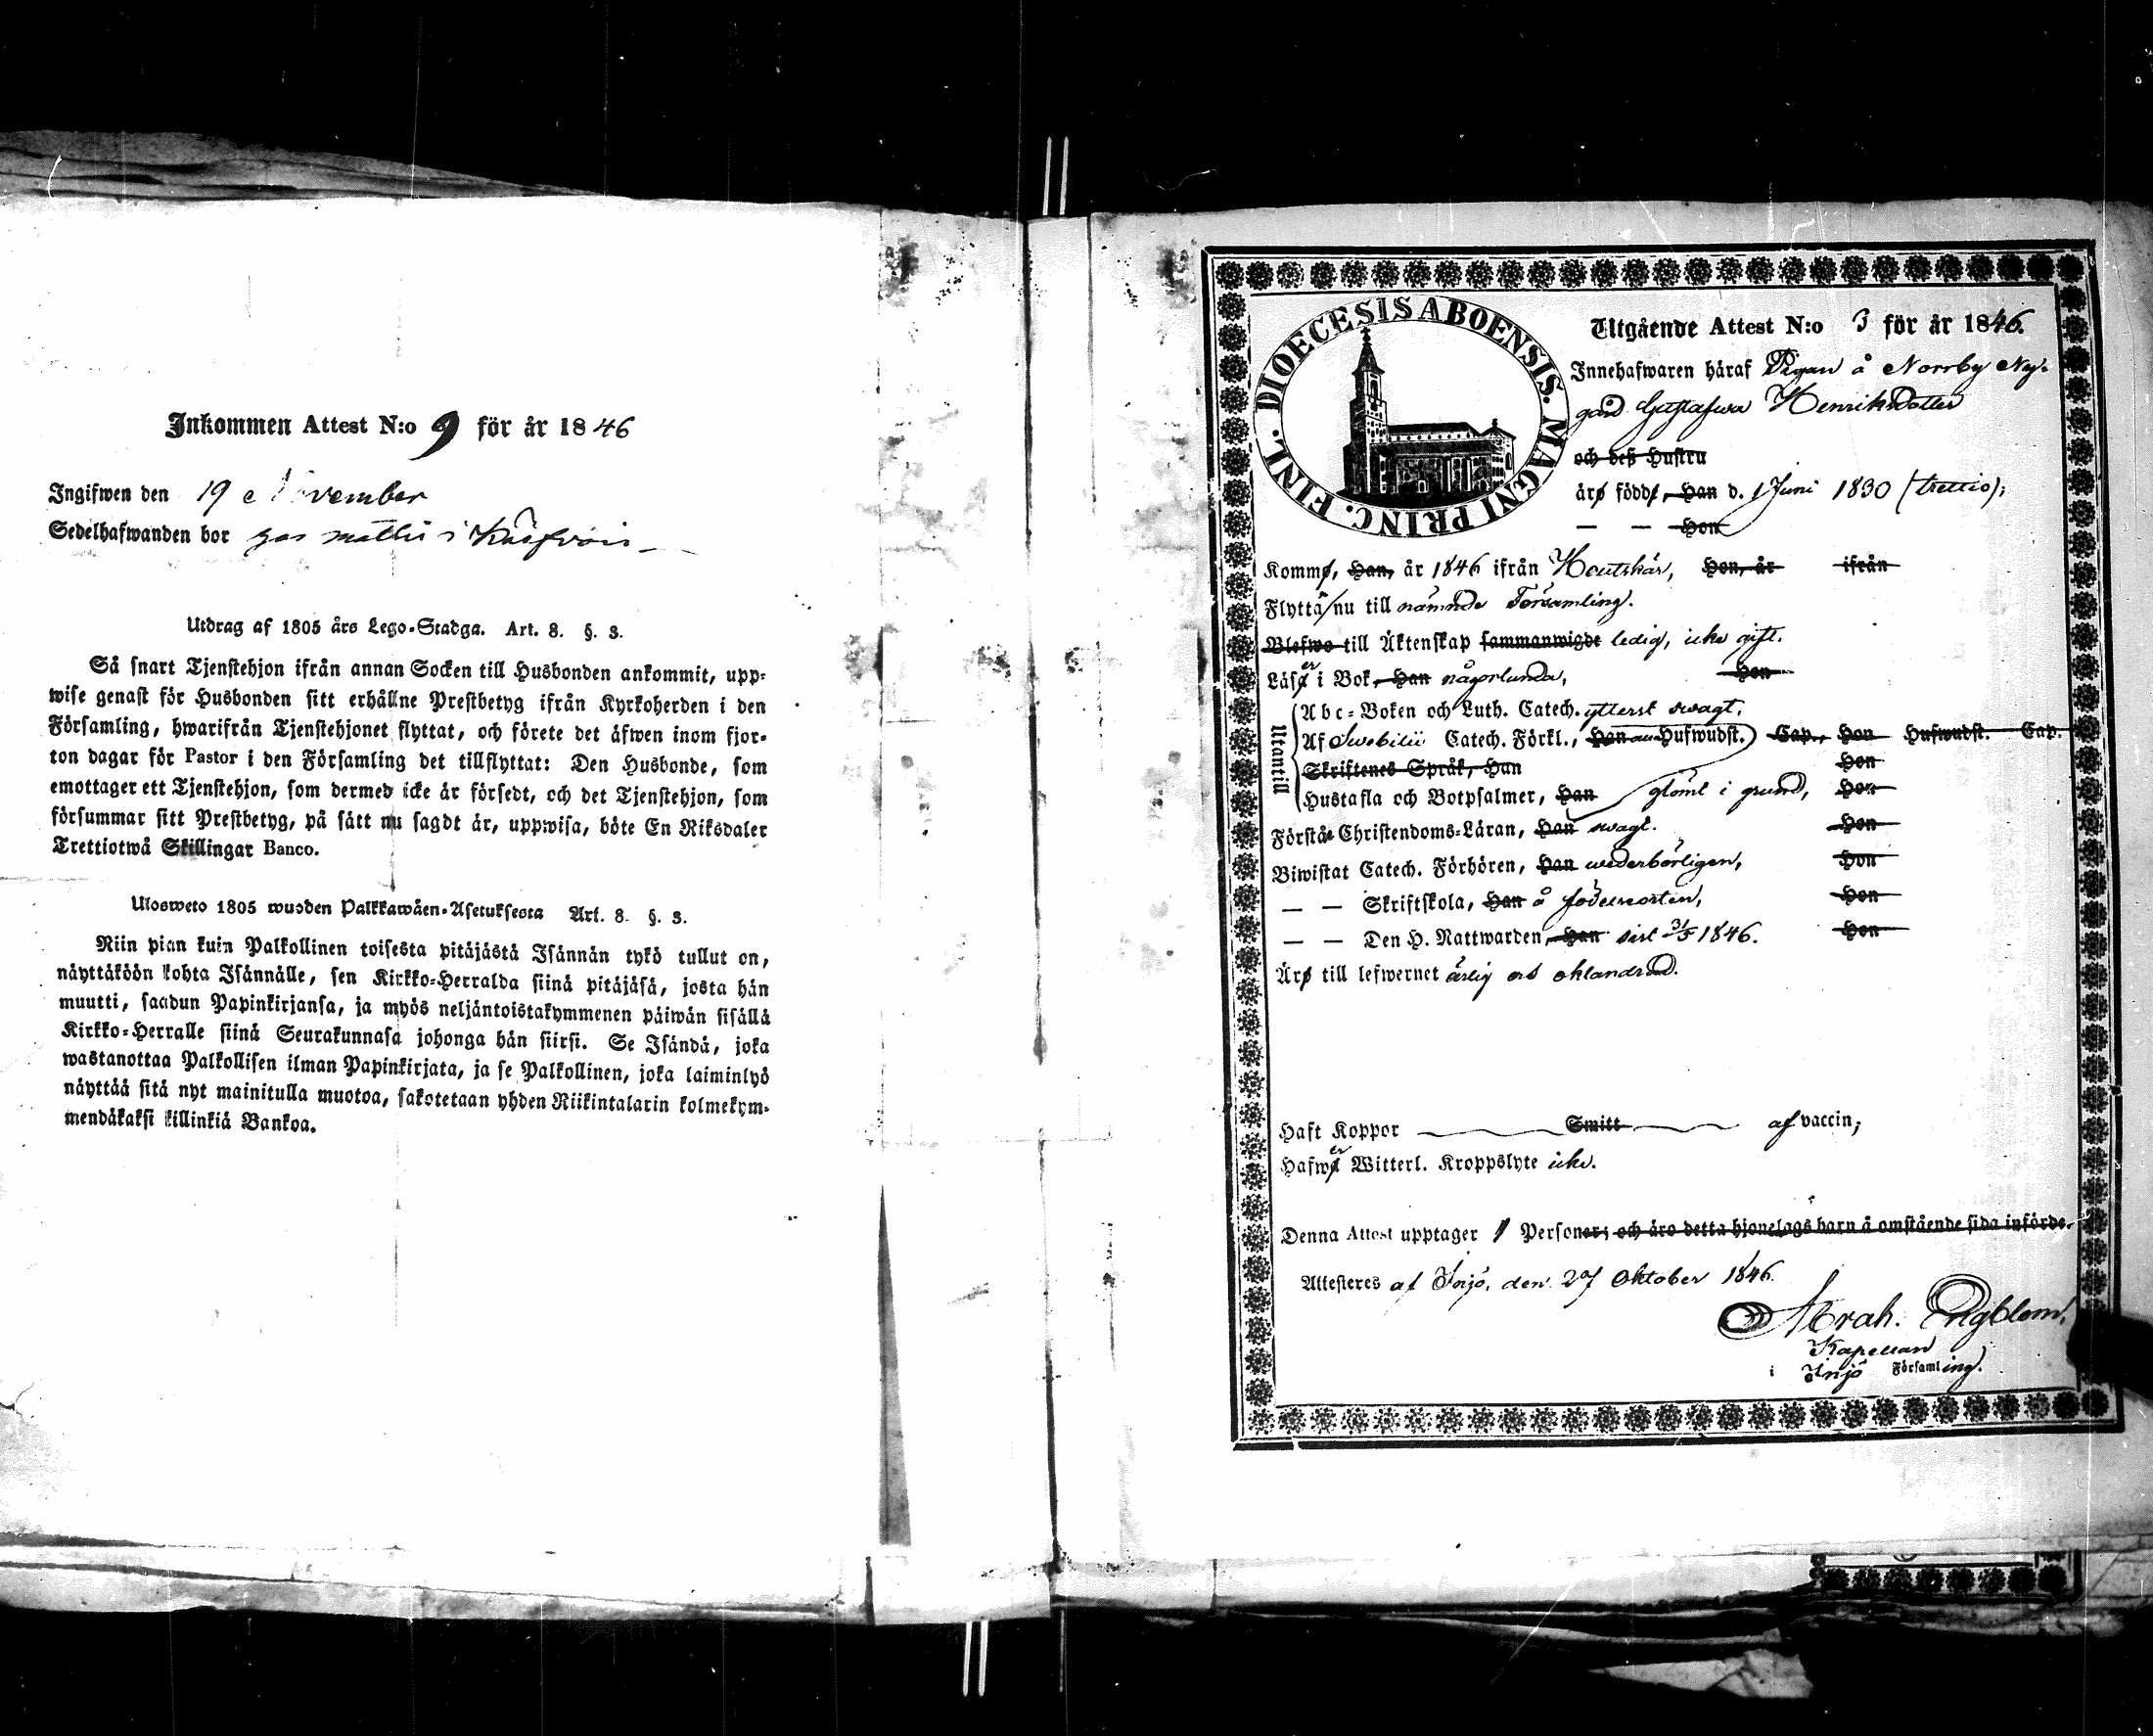 Inkommen Attest N:o 9 för år 1846
Ingifwen den 19 November
Sedelhafwanden bor i
Utdrag af 1805 års Lego-Stadga. Art. 8. §. 3.
Så snart Tjenstehjon ifrån annan Socken till Husbonden ankommit, upp-
wise genast för Husbonden sitt erhållne Prestbetyg ifrån Kyrkoherden i den
Församling, hwarifrån Tjenstehjonet flyttat, och förete det äfwen inom fjor-
ton dagar för Pastor i den Församling det tillflyttat: Den Husbonde, som
emottager ett Tjenstehjon, som dermed icke är försedt, och det Tjenstehjon, som
försummar sitt Prestbetyg, på sätt nu sagdt är, uppwisa, böte En Riksdaler
Trettiotwå Skillingar Banco.
Ulosweto 1805 wuoden Palkkawäen-Asetuksesta Art. 8. §. 3.
Niin pian kuin Palkollinen toisesta pitäjästä Isännän tykö tullut on,
näyttäköön kohta Isännälle, sen Kirkko-Herralda siinä pitäjäsä, josta hän
muutti, saadun Papinkirjansa, ja myös neljäntoistakymmenen päiwän sisällä
Kirkko-Herralle siinä Seurakunnasa johonga hän siirsi. Se Isändä, joka
wastanottaa Palkollisen ilman Papinkirjata, ja se Palkollinen, joka laiminlyö
näyttää sitä nyt mainitulla muotoa, sakotetaan yhden Riikintalarin kolmekym-
mendäkaksi killinkiä Bankoa.
DIOECESIS ABOENSIS. MAGNI PRINC. FINL.
Utgående Attest N:o 3 för år 1846.
Innehafwaren häraf Pigan å Norrby Ny-
gård Gustafwa Henriksdotter
och deß Hustru
äro född, Han d. 1 Juni 1830 (trettio);
— — Hon
Komm, Han, år 1846 ifrån Houtskär, Hon, år ifrån
Flytta nu till nämnde Församling.
Blefwo till Äktenskap sammanwigde ledig, icke gift.
Läser i Bok, Han någorlunda, Hon
Utantill
Abc-Boken och Luth. Catech. ytterst swagt,
Af Swebilii Catech. Förkl., Han Hufwudst. Cap., Hon Hufwudst. Cap.
Skriftenes Språk, Han Hon
Hustafla och Botpsalmer, Han glömt i grund, Hon
Förstå Christendoms-Läran, Han swagt. Hon
Biwistat Catech. Förhören, Han wederbörligen, Hon
— — Skriftskola, Han å födelseorten, Hon
— — Den H. Nattwarden, Han sist 31/5 1846. Hon
Äro till lefwernet ärlig och oklandrad.
Haft Koppor Smitt af vaccin;
Hafwer Witterl. Kroppslyte icke.
Denna Attest upptager 1 Personer; och äro detta hjonelags barn å omstående sida införde.
Attesteres af Iniö, den 27 Oktober 1846.
Abrah. Engblom,
Kapellan
i Iniö Församling.